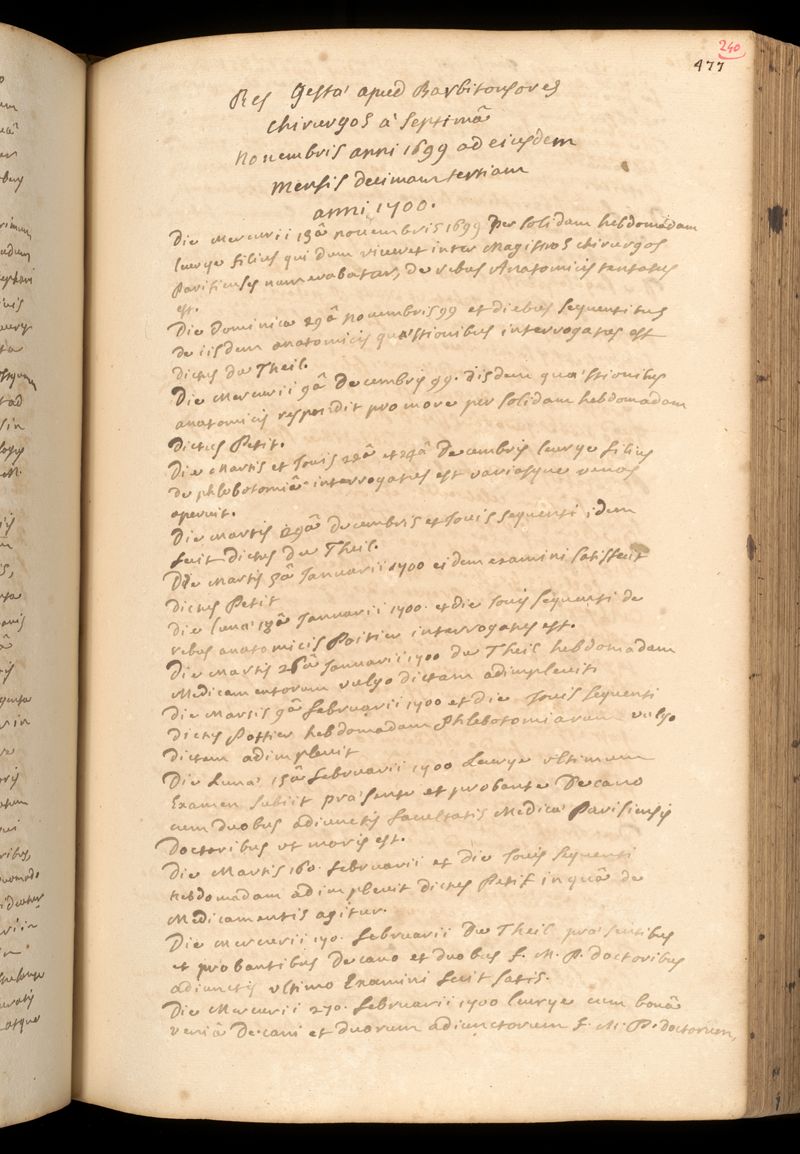 240
477
Res Gesta' apud Barbitonsores
chirurgos a' septimâ
novembris anni 1699 ad eiusdem
mensis decimam tertiam
anni 1700.
Die Mercurii 13â novembris 1699 Per solidam hebdomadam
leurye filius qui dum viveret inter Magistros chirurgos
Parisienses numerabatur, de rebus Anatomicis tentatus
est.
Die Dominica 29â novembris 99 et diebus sequentibus
de iisdem anatomicis quæstionibus interrogatus est
dictus du Theil.
Die Mercurii 9â Decembris 99. iisdem quæstionibus
anatomicis respondit pro more per solidam hebdomadam
dictus Petit.
Die Martis et Jovis 22â et 24â decembris leurye filius
de phlebotomiâ interrogatus est variasque venas
aperuit.
Die Martis 29â decembris et Jovis sequenti idem
fecit dictus du Theil.
Die Martis 5â Januarii 1700 eidem examini satisfecit
dictus Petit
Die luna' 18â Januarii 1700. et die Jovis sequenti de
rebus anatomicis Poitier interrogatus est.
Die Martis 26â Januarii 1700 du Theil hebdomadam
Medicamentorum vulgo dictam adimplevit
Die Martis 9â februarii 1700 et die Jovis sequenti
dictus Pottier hebdomadam Phlebotomiarum vulgo
dictam adimplevit
Die Luna' 15â februarii 1700 Leurye ultimum
Examen subiit præsente et probante Decano
cum duobus adiunctis facultatis Medicæ Parisiensis
Doctoribus ut moris est.
Die Martis 16o. februarii et die Jovis sequenti
hebdomadam adimplevit dictus Petit in quâ de
Medicamentis agitur.
Die Mercurii 17o. februarii Du Theil præsentibus
et probantibus Decano et duobus f. M. P. doctoribus
adiunctis ultimo Examini fecit satis.
Die Mercurii 27o. februarii 1700 leurye cum bonâ
veniâ Decani et duorum adiunctorum f. M. P. doctorum,